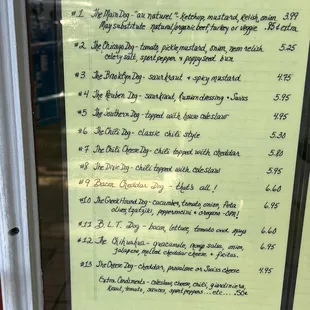 #1 The Main Dog - "au naturel" - Ketchup, mustard, relish, onion 3.99
May substitute natural/organic beef, turkey or veggie .50¢ extra
#2 The Chicago Dog - tomato, pickle, mustard, onion, neon relish 5.25
celery salt, sport pepper & poppyseed bun
#3 The Brooklyn Dog - saurkraut & spicy mustard 4.75
#4 The Reuben Dog - saurkraut, Russian dressing & Swiss 5.95
#5 The Southern Dog - topped with house coleslaw 4.95
#6 The Chili Dog - classic chili style 5.30
#7 The Chili Cheese Dog - chili topped with cheddar 5.80
#8 The Dixie Dog - chili topped with coleslaw 5.95
#9 Bacon Cheddar Dog - that's all! 6.60
#10 The Greek Hound Dog - cucumber, tomato, onion, feta 6.95
olives, tzatziki, pepperoncini & oregano
#11 B.L.T. Dog - bacon, lettuce, tomato and mayo 6.60
#12 The Chihuahua - guacamole, salsa, onion, 6.95
jalapeno, melted cheddar cheese & fritos.
#13 The Cheese Dog - cheddar, provolone or Swiss cheese 4.95
Extra Condiments - coleslaw, cheese, chili, giardiniera,
kraut, tomato, sauces, sport peppers...etc.... .50¢